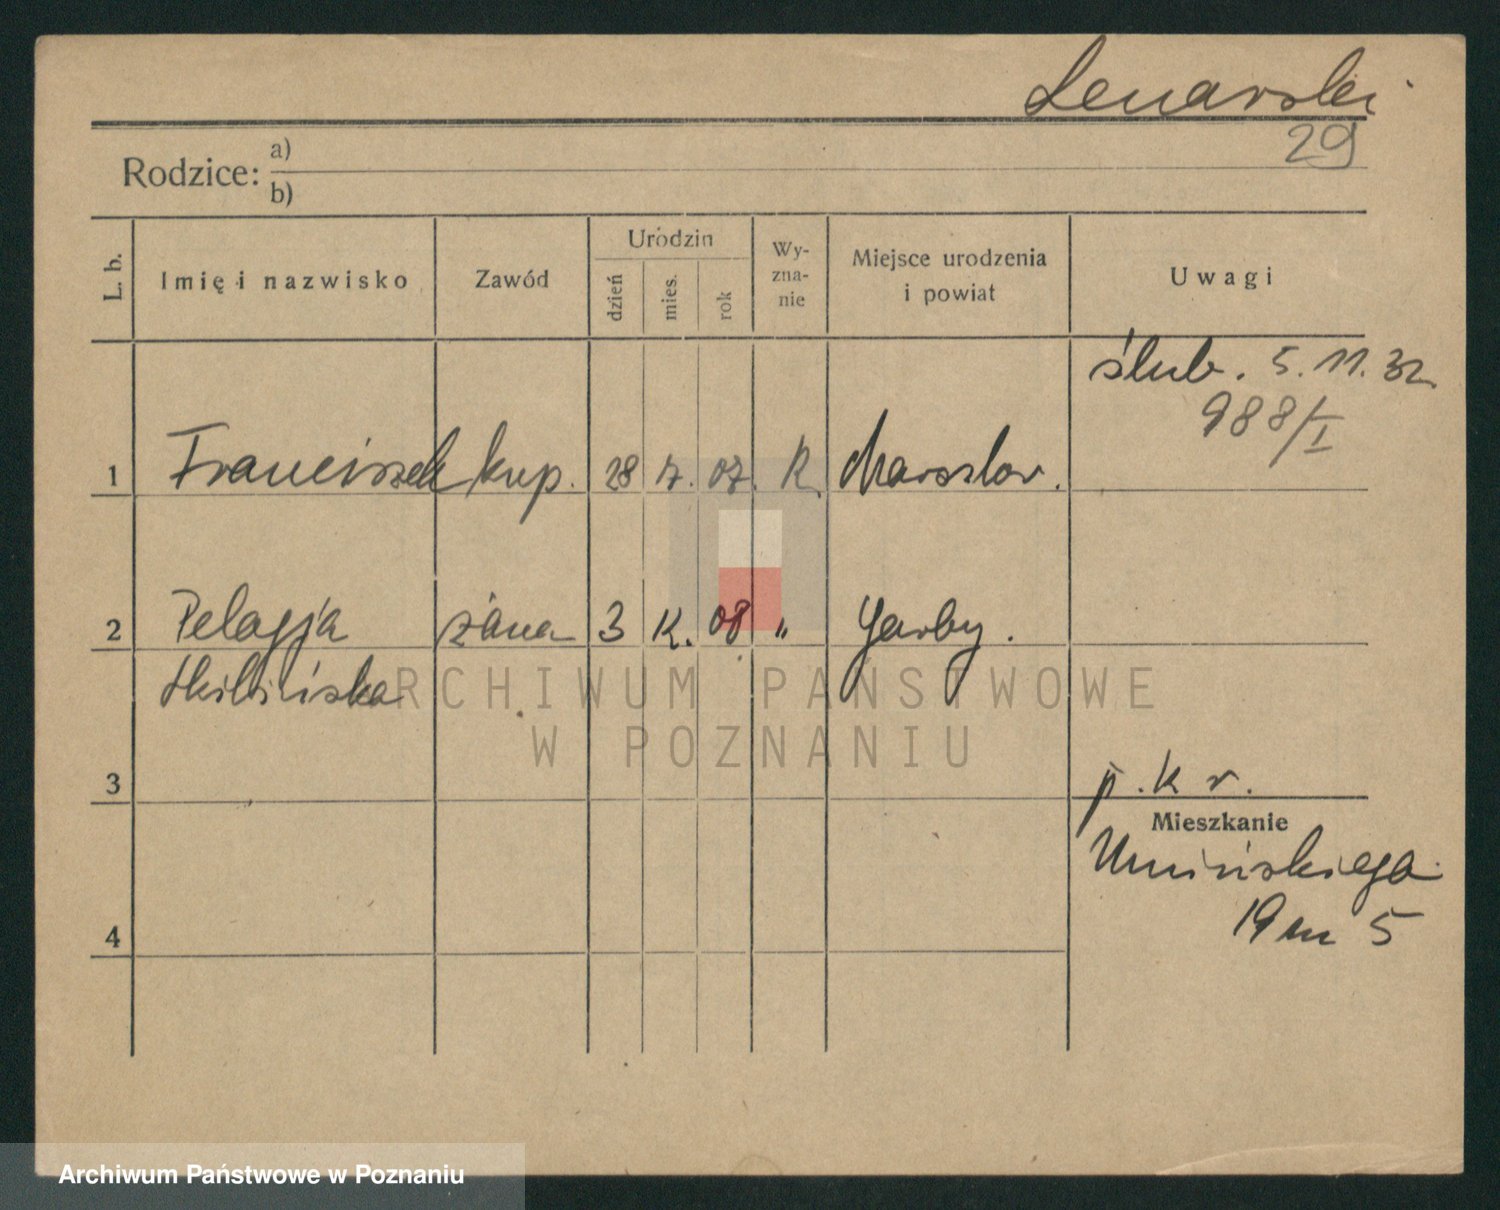 Lenarski
29
Rodzice: a)
b)
L. b.
Imię i nazwisko
Zawód
Urodzin
dzień
mies.
rok
Wy-
zna-
nie
Miejsce urodzenia
i powiat
Uwagi
ślub. 5. 11. 32
988/I
1 Franciszek kup. 28 7. 07. R.
2 Pelagja żona 3 08 " Garby.
3
p. k r.
Mieszkanie
Umińskiego
19 m 5
4
ARCHIWUM PAŃSTWOWE
W POZNANIU
Archiwum Państwowe w Poznaniu